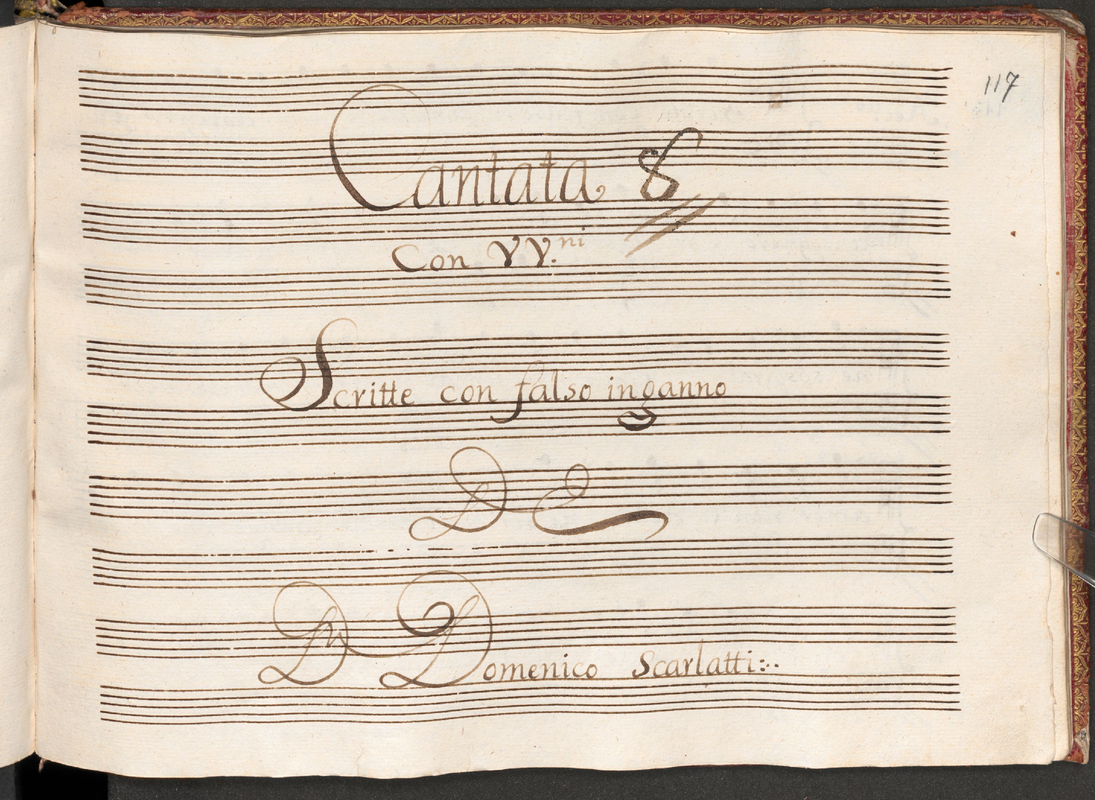 117
Cantata 8
Con VV.ni
Scritte con falso inganno
DE
Dn Domenico Scarlatti:..